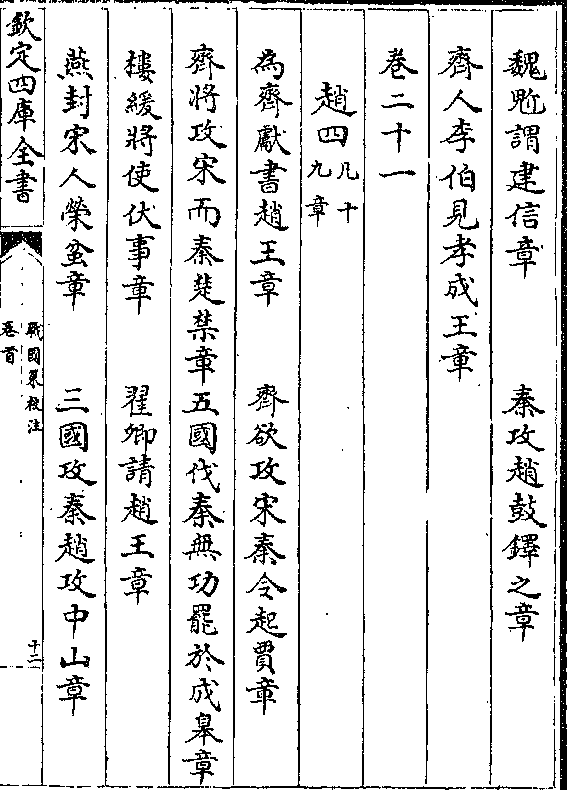 魏𩲸謂建信章　秦攻趙鼓鐸之章
齊人李伯見孝成王章
巻二十一
趙四凡十九章
為齊獻書趙王章　齊欲攻宋秦令起賈章
齊將攻宋而秦楚禁章　五國伐秦無功罷於成皋章
樓緩將使伏事章　翟卿請趙王章
燕封宋人榮蚠章　三國攻秦趙攻中山章
欽定四庫全書
戰國策校注
巻首
十二